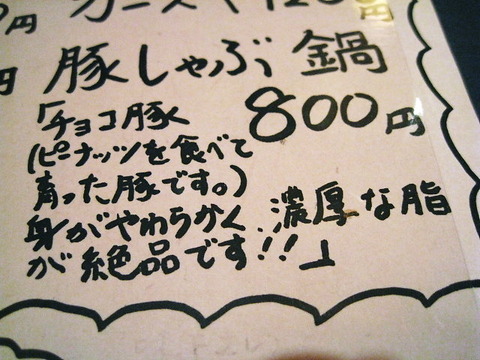 円 チーズ 120円
円
豚しゃぶ鍋
800円
「チョコ豚
(ピーナッツを食べて
育った豚です。)
身がやわらかく、濃厚な脂
が絶品です!!」